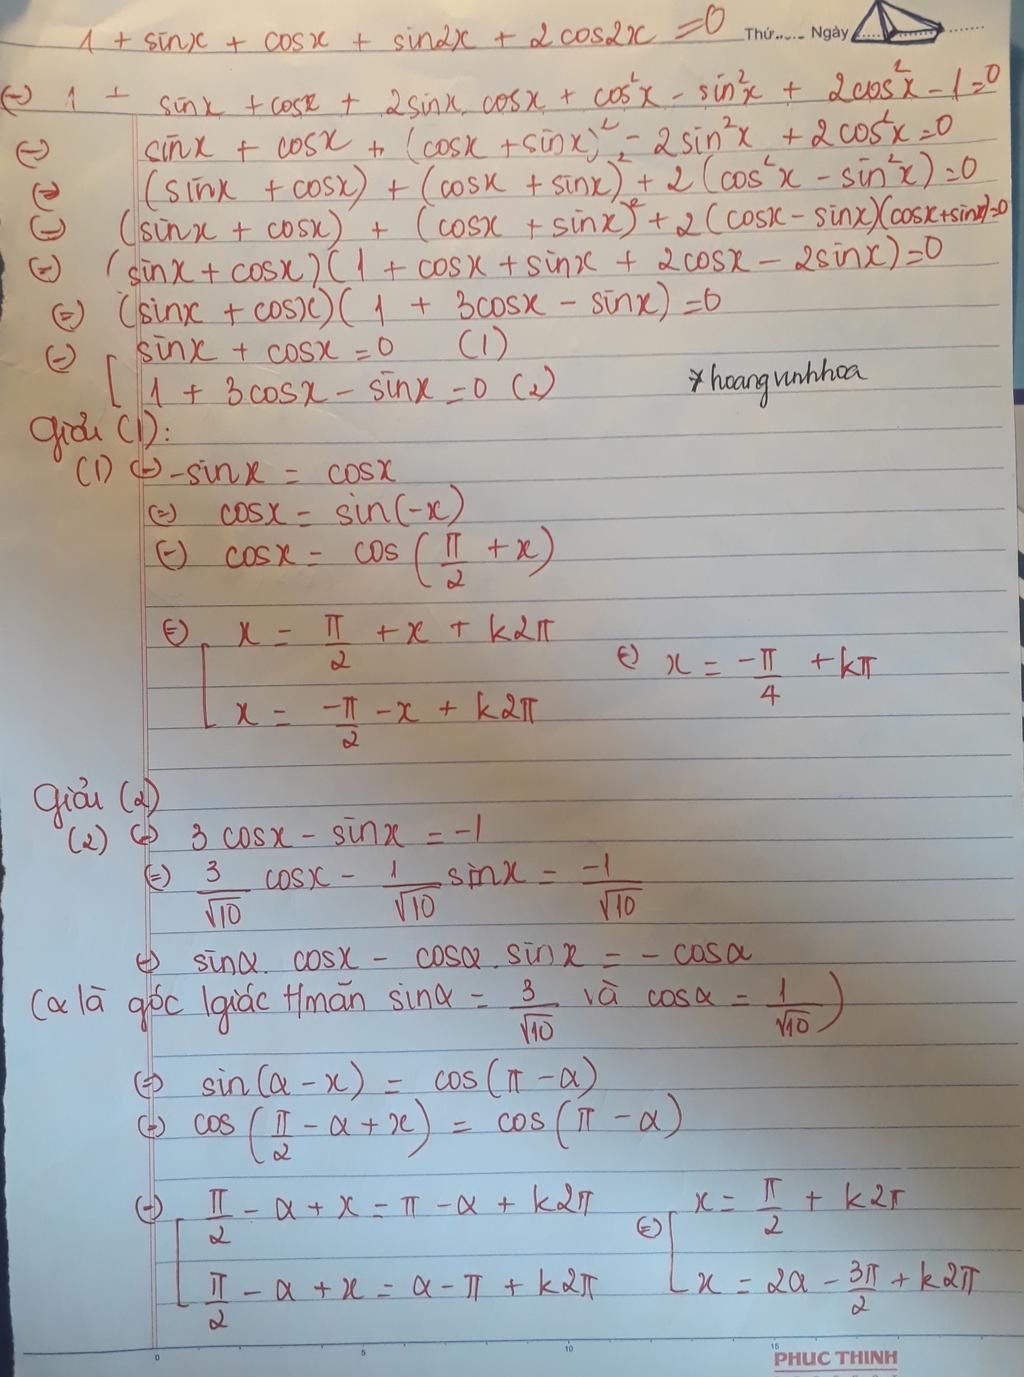 1 + sinx + cosx + sin2x + 2cos2x = 0
Thứ..... Ngày ...........
(=) 1 + sinx + cosx + 2sinx cosx + cos²x - sin²x + 2cos²x - 1 = 0
(=) sinx + cosx + (cosx + sinx)² - 2sin²x + 2cos²x = 0
(=) (sinx + cosx) + (cosx + sinx)² + 2(cos²x - sin²x) = 0
(=) (sinx + cosx) + (cosx + sinx)² + 2(cosx - sinx)(cosx + sinx) = 0
(=) (sinx + cosx)(1 + cosx + sinx + 2cosx - 2sinx) = 0
(=) (sinx + cosx)(1 + 3cosx - sinx) = 0
(=) [ sinx + cosx = 0 (1)
1 + 3cosx - sinx = 0 (2)
* hoangvinhhoa
Giải (1):
(1) (=) -sinx = cosx
(=) cosx = sin(-x)
(=) cosx = cos(π/2 + x)
(=) [ x = π/2 + x + k2π
x = -π/2 - x + k2π
(=) x = -π/4 + kπ
Giải (2)
(2) (=) 3cosx - sinx = -1
(=) 3/√10 cosx - 1/√10 sinx = -1/√10
(=) sinα. cosx - cosα. sinx = - cosα
(α là góc lgiác t/mãn sinα = 3/√10 và cosα = 1/√10)
(=) sin(α - x) = cos(π - α)
(=) cos(π/2 - α + x) = cos(π - α)
(=) [ π/2 - α + x = π - α + k2π
π/2 - α + x = α - π + k2π
(=) [ x = π/2 + k2π
x = 2α - 3π/2 + k2π
0 5 10 15
PHUC THINH